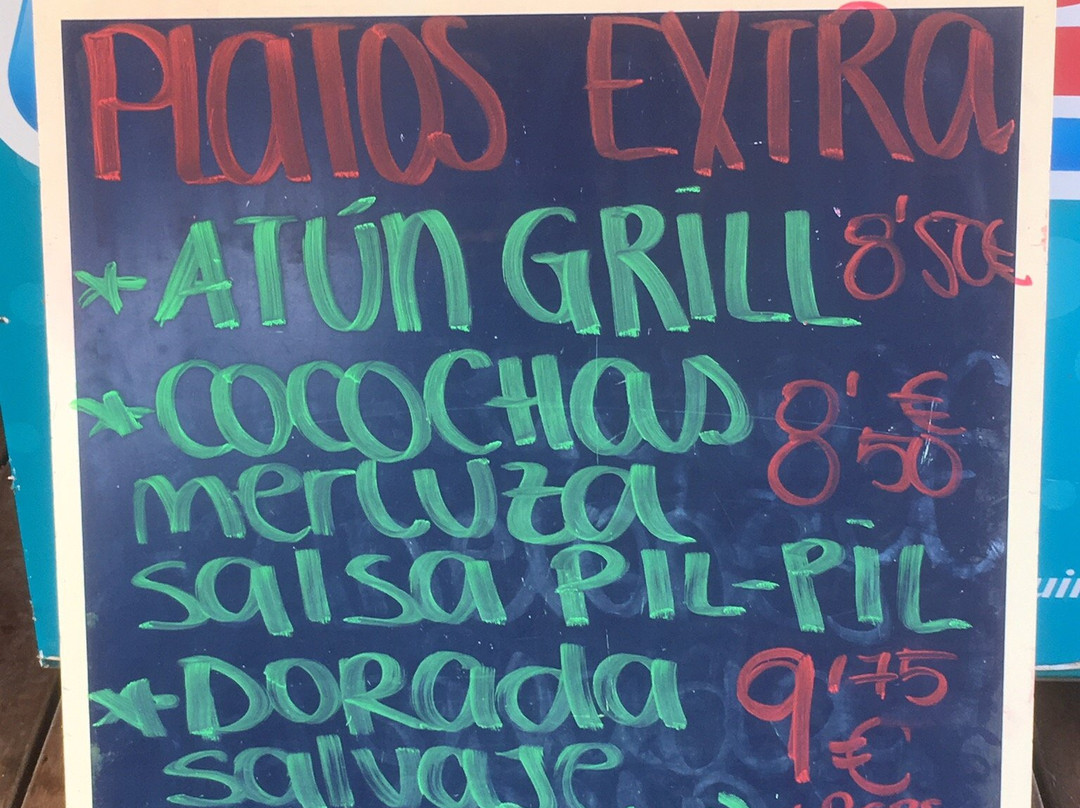 PLATOS EXTRA
* ATÚN GRILL 8'50€
* COCOCHAS 8'50€
merluza
salsa PIL-PIL
* DORADA 9'75€
salvaje